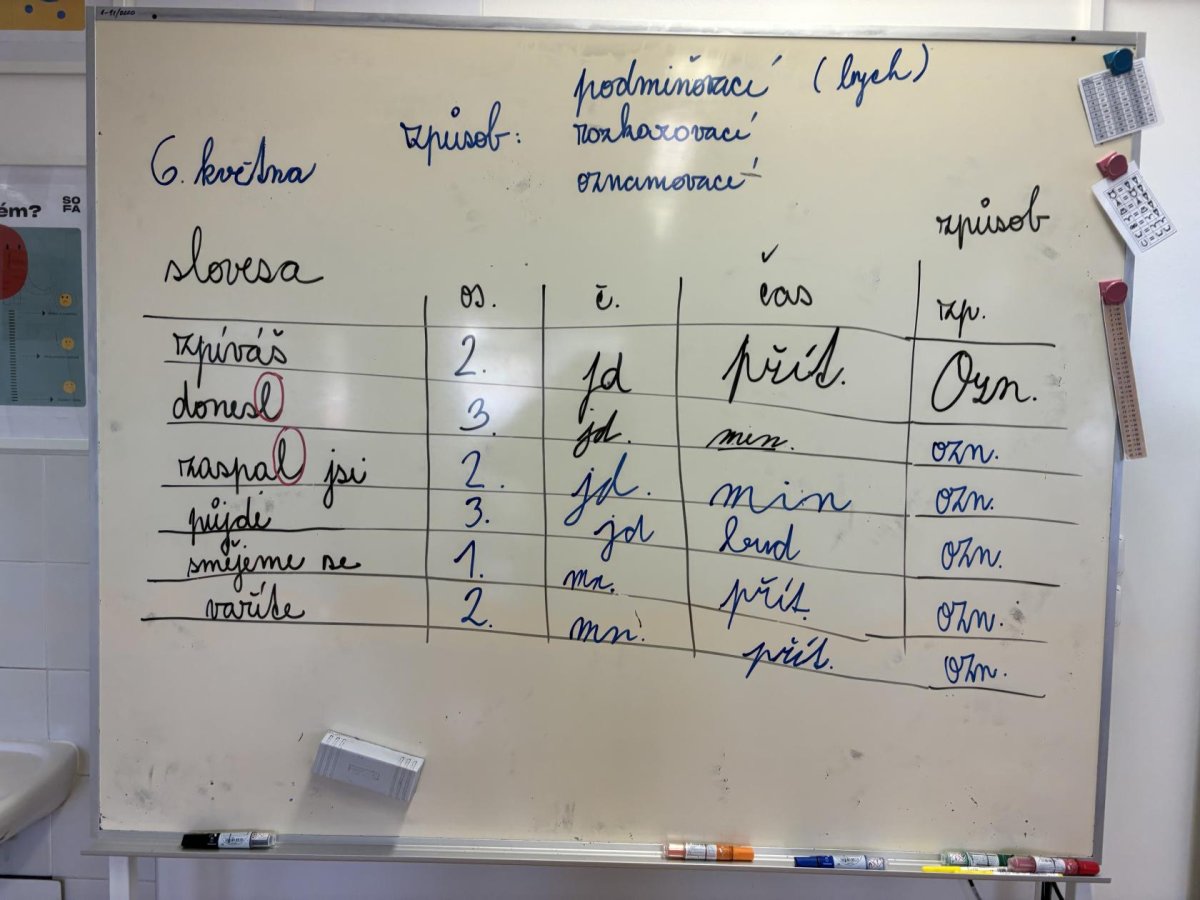 podmiňovací (bych)
způsob: rozkazovací
6. května oznamovací
ém? SO FA
způsob
slovesa os. č. čas zp.
zpíváš 2. jd přít. Ozn.
donesl 3. jd. min. ozn.
zaspal jsi 2. jd. min ozn.
půjde 3. jd bud ozn.
smějeme se 1. mn. přít. ozn.
vaříte 2. mn. přít. ozn.